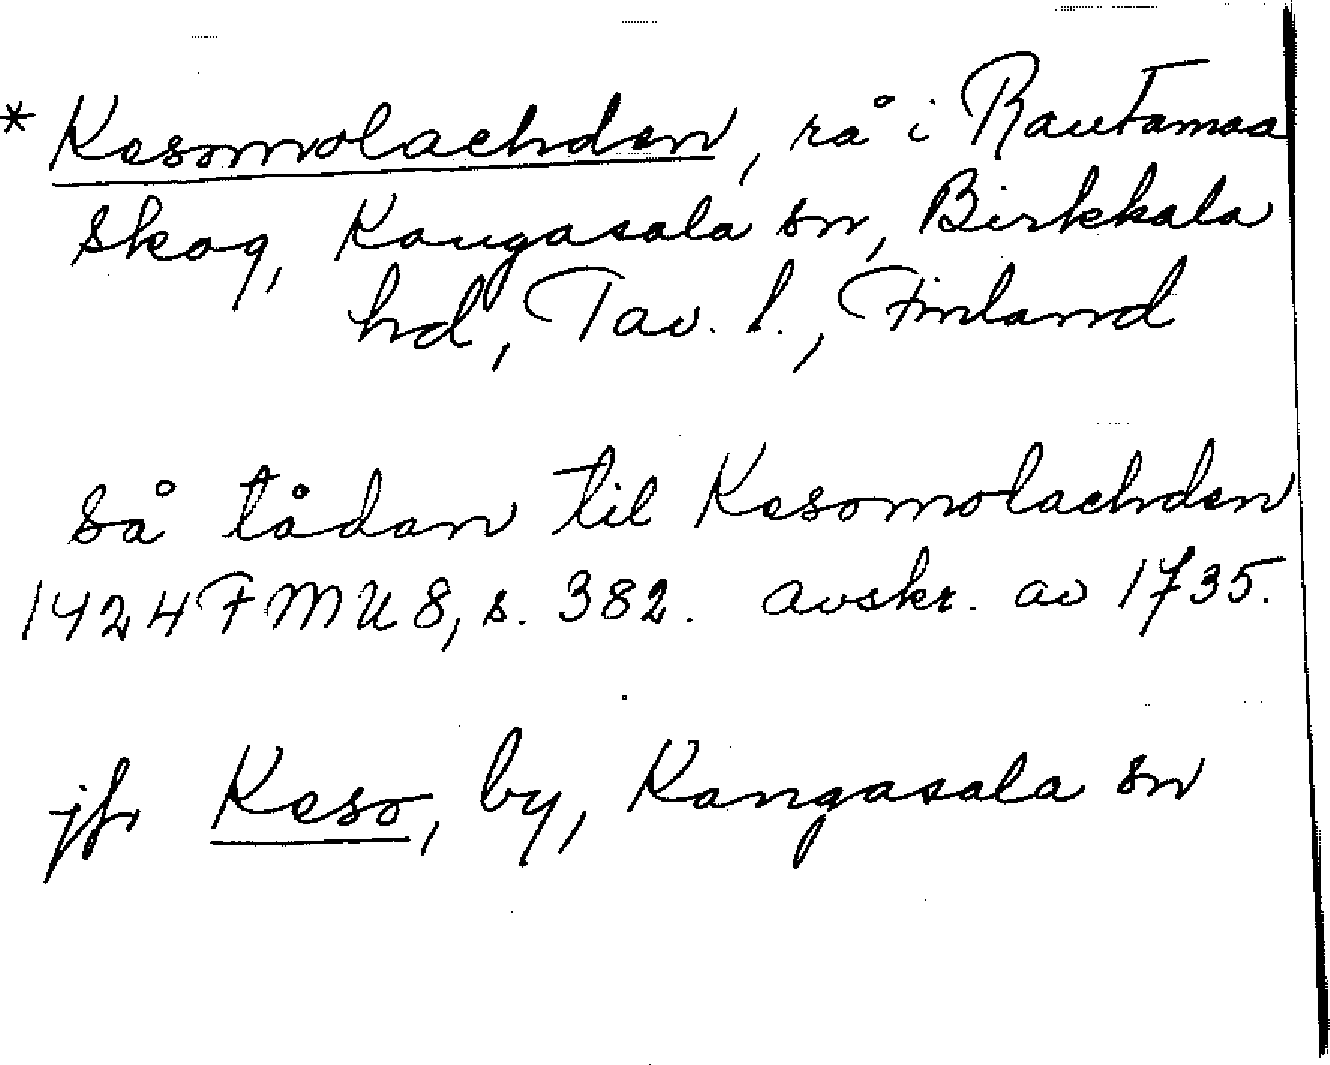 * Kesomolaehden, rå i Rautamaa
skog, Kangasala sn, Birkkala
hd, Tav. l., Finland
så tådan til Kesomolaehden
1424 FMU 8, s. 382. avskr. av 1735.
jfr Keso, by, Kangasala sn